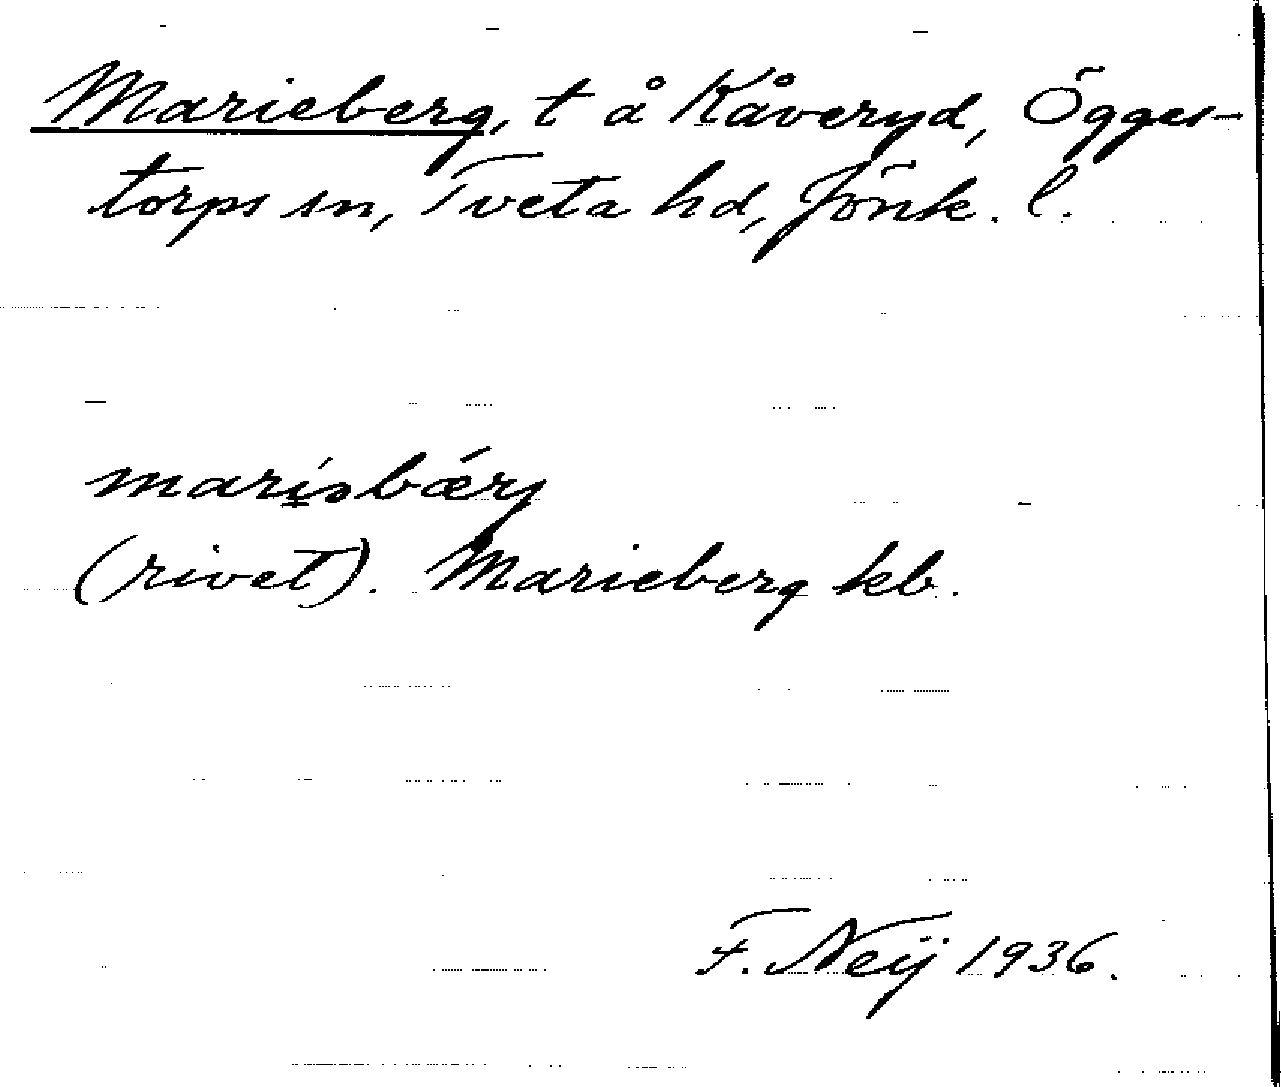 Marieberg, t å Kåveryd, Ögges-
torps sn, Tveta hd, Jönk. l.
marísbǽrj
(rivet). Marieberg kb.
F. Neij 1936.